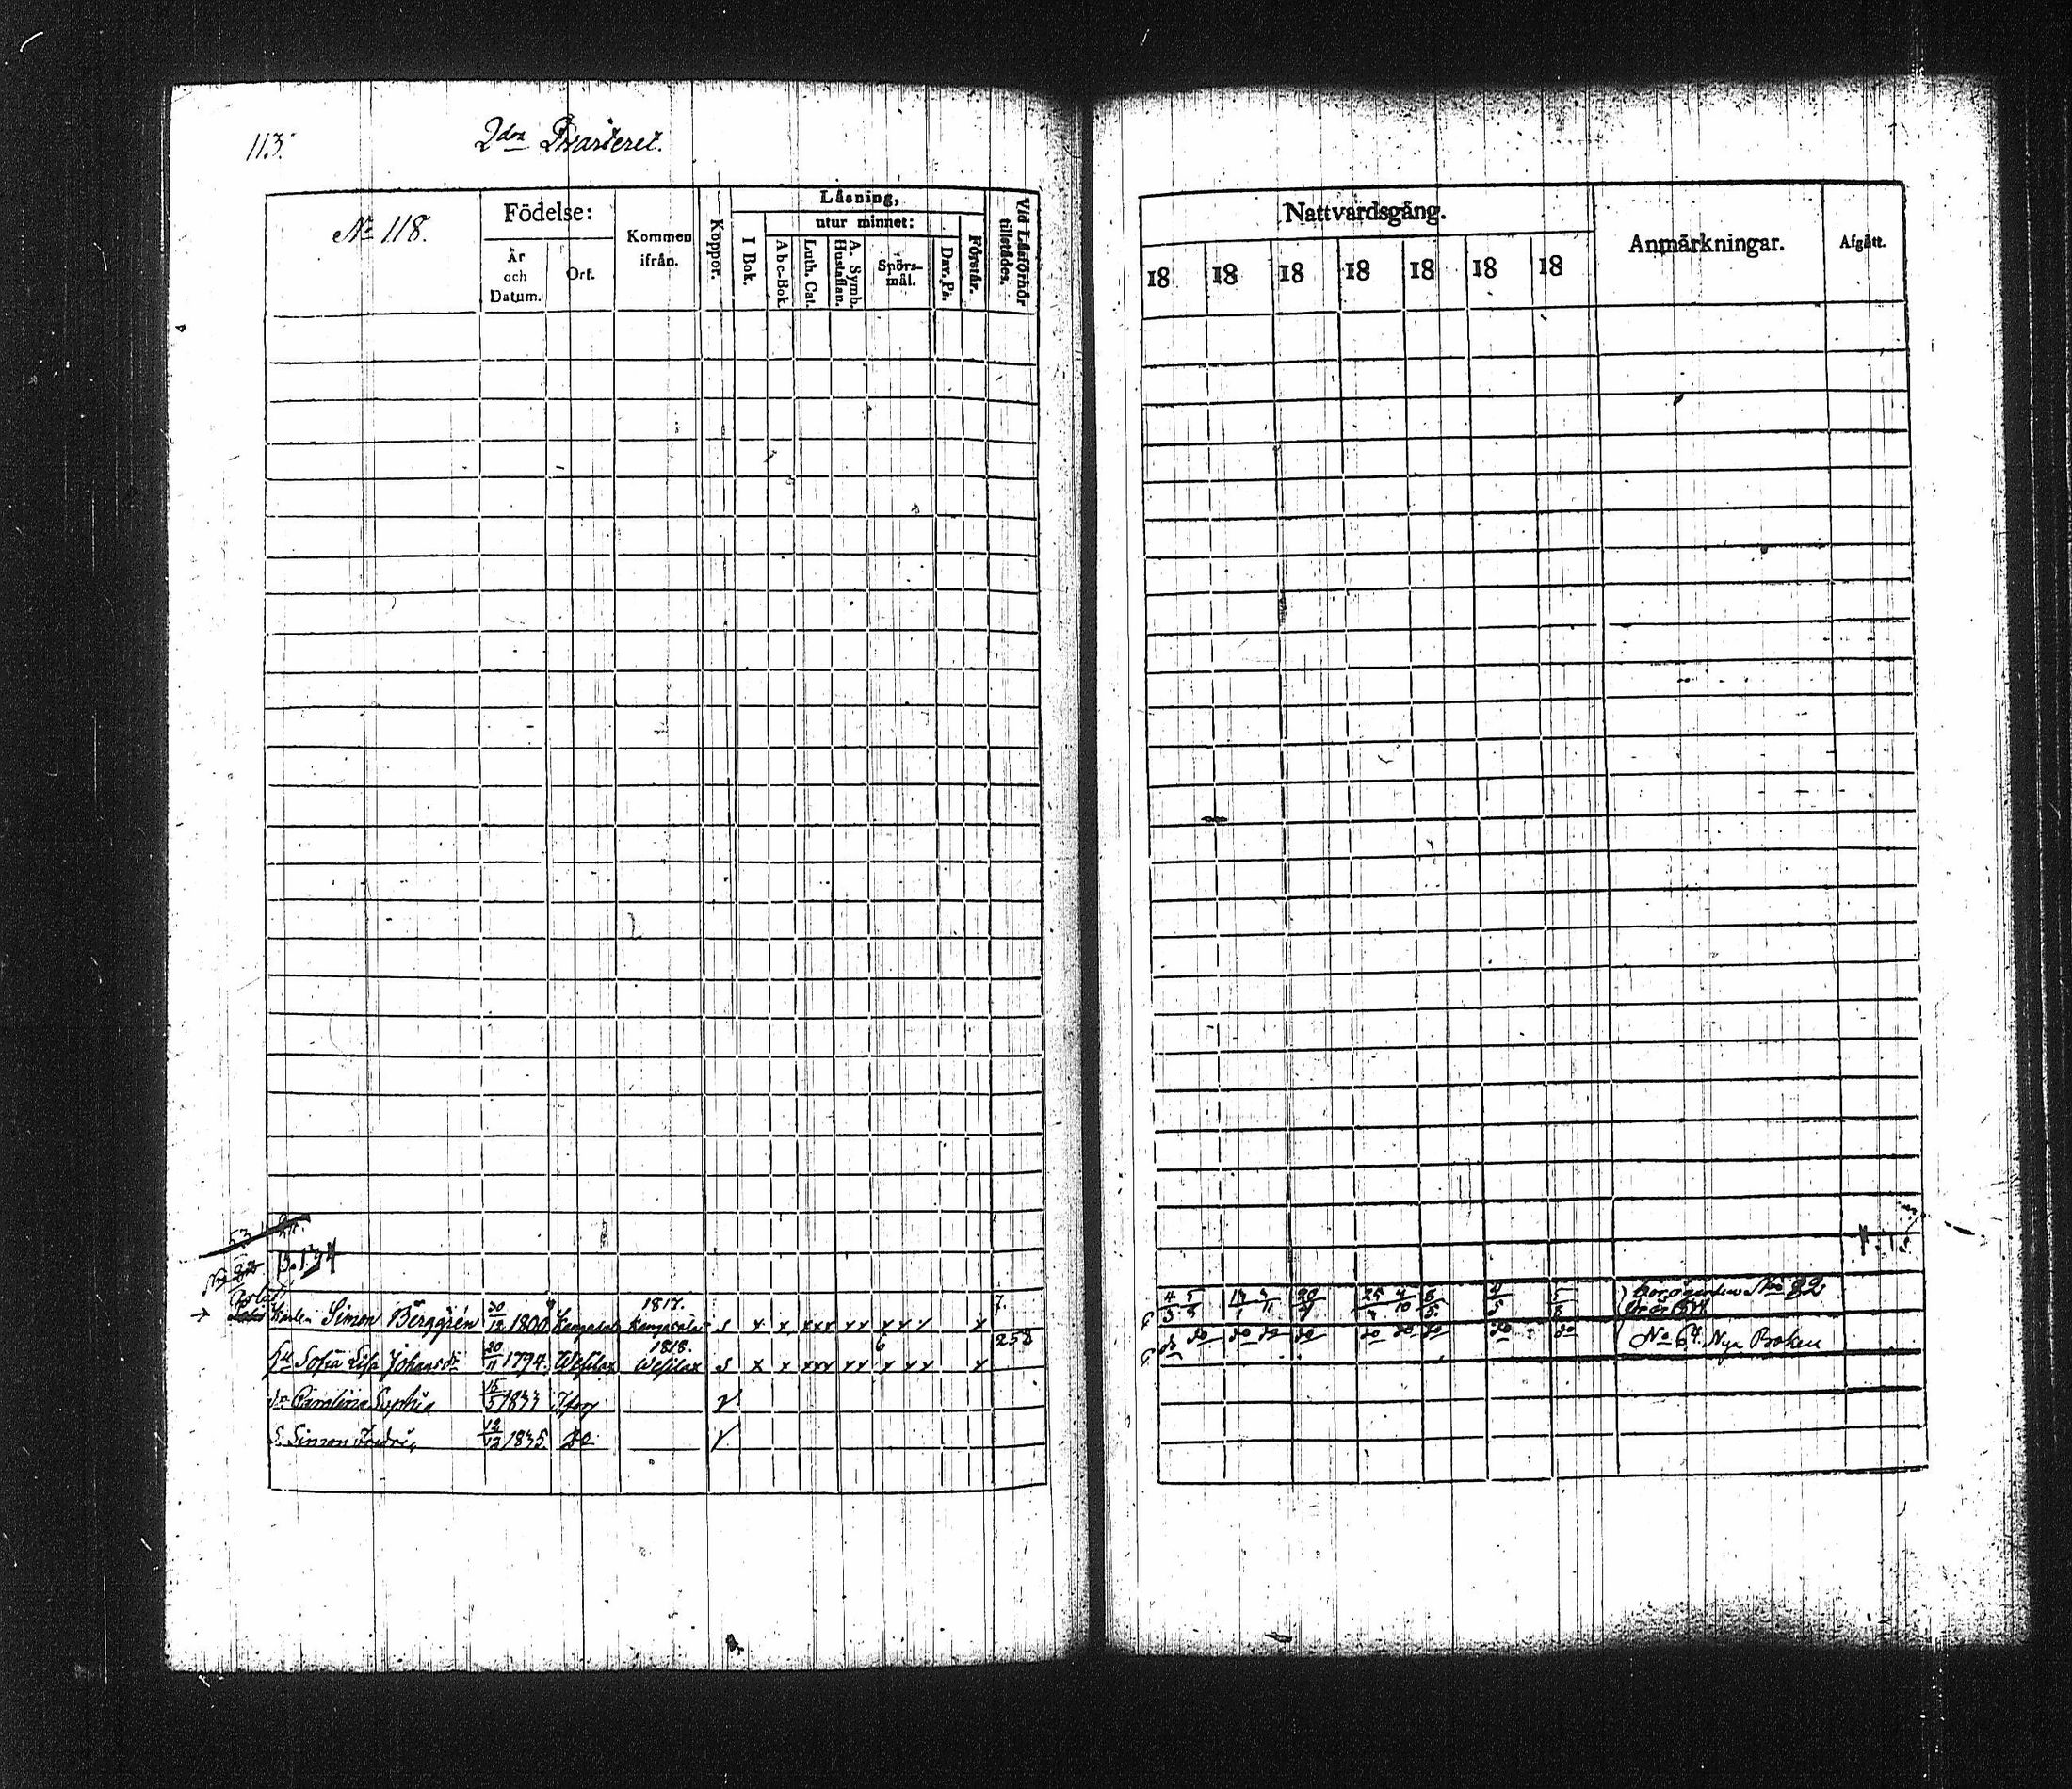 113.
2dra Qvarteret.
No 118.
Födelse:
År och Datum.
Ort.
Kommen ifrån.
Koppor.
Läsning,
I Bok.
utur minnet:
A b c-Bok.
Luth. Cat.
A. Symb. Hustaflan.
Spörs-mål.
Dav. Ps.
Förstår.
Vid Läsförhör tillstädes.
Nattvardsgång.
18 18 18 18 18 18 18
Anmärkningar.
Afgått.
53
p. 134
No 82
Karln Simon Berggrén 30/12 1800 Kangasala 1817. Kangasala s x x xxx xx x x x x 7.
4/3 5/8 20/4 25/ 4/10 6/5 4/5 5/ No 82
hu Sofia Lisa Johansdr 20/11 1794. Wesilax 1818. Wesilax s x x xxx xx 6 x xx x 258
do do do do do do do do do do No 64 Nya Boken
dr Carolina Sophia 15/5 1833 Tfors v
S. Simon Fredric 12/12 1835. Do v